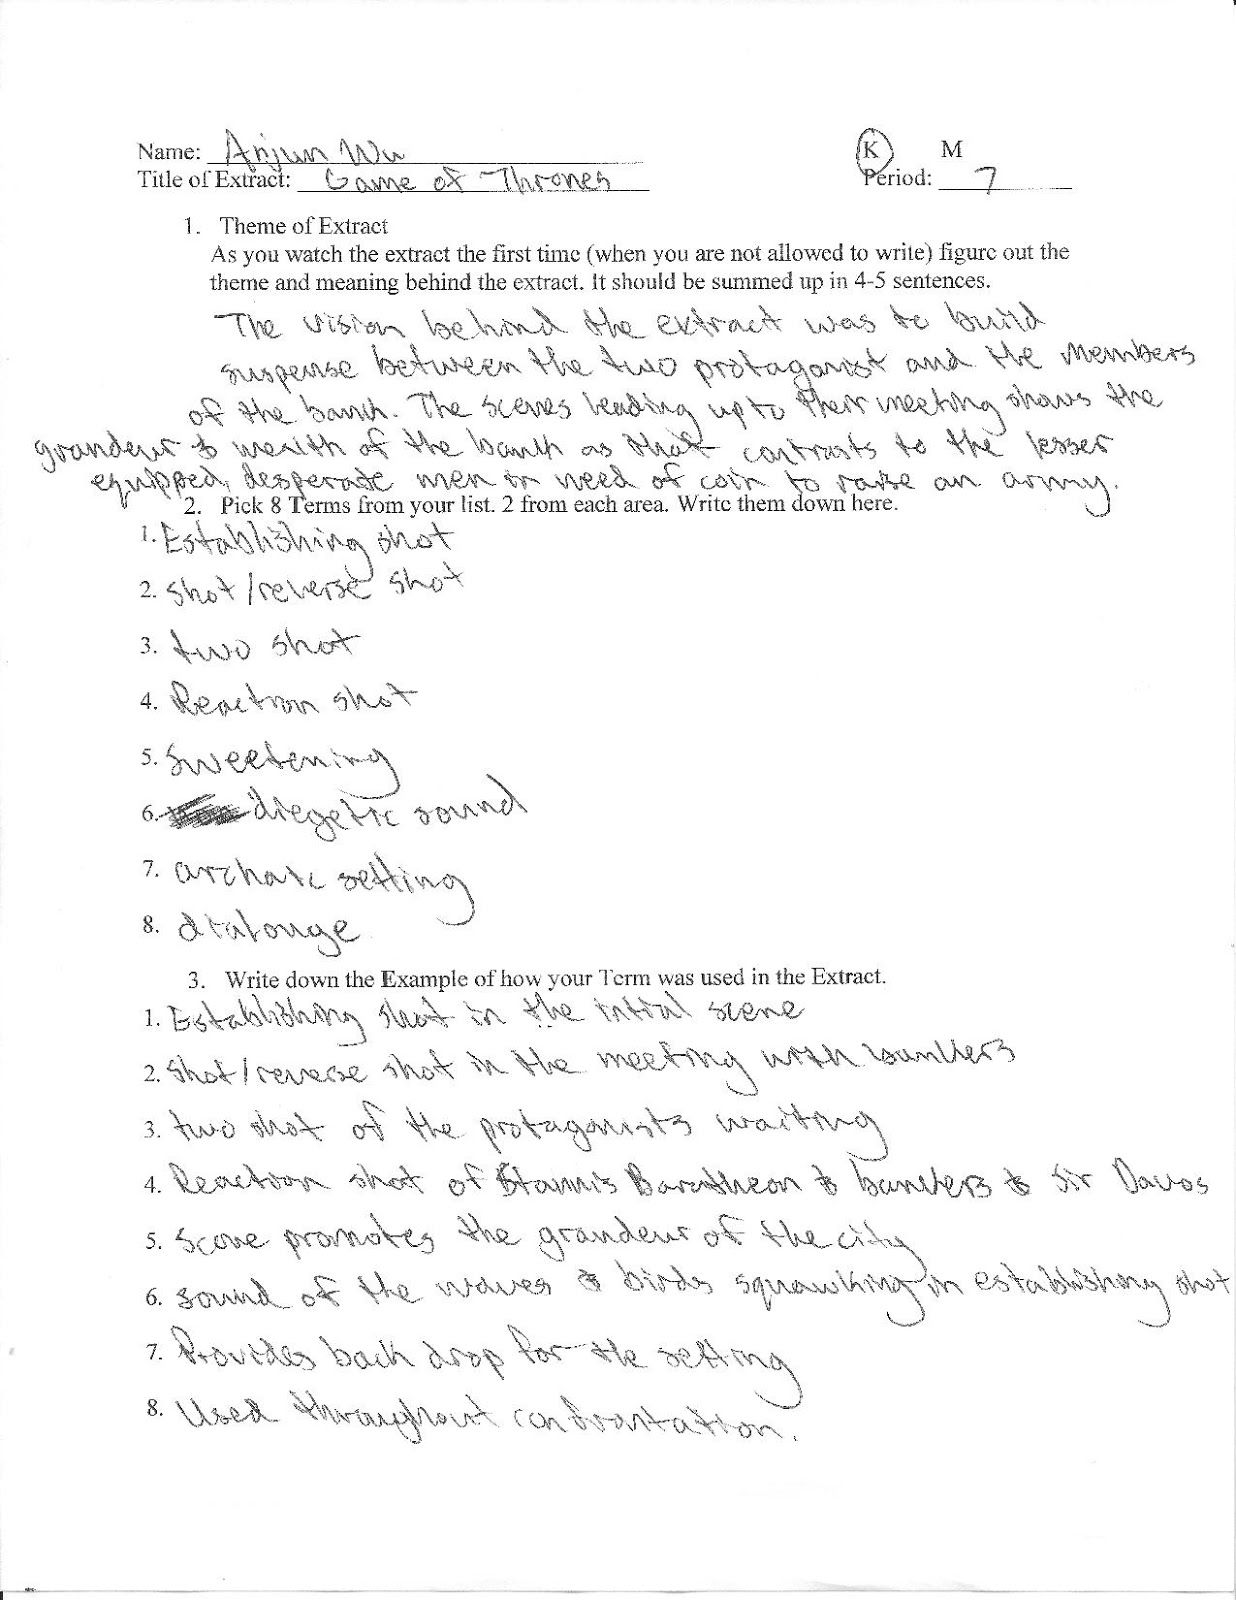 Name: Anjun Wu K M
Title of Extract: Game of Thrones Period: 7
1. Theme of Extract
As you watch the extract the first time (when you are not allowed to write) figure out the
theme and meaning behind the extract. It should be summed up in 4-5 sentences.
The vision behind the extract was to build
suspense between the two protagonist and the Members
of the bank. The scenes leading up to their meeting shows the
grandeur & wealth of the bank as that contrasts to the lesser
equipped, desperate men in need of coin to raise an army.
2. Pick 8 Terms from your list. 2 from each area. Write them down here.
1. Establishing shot
2. Shot/reverse shot
3. two shot
4. Reaction shot
5. Sweetening
6. diegetic sound
7. archaic setting
8. dialouge
3. Write down the Example of how your Term was used in the Extract.
1. Establishing shot in the intial scene
2. Shot/reverse shot in the meeting with bankers
3. two shot of the protagonists waiting
4. Reaction shot of Stannis Baratheon & bankers & Sir Davos
5. Score promotes the grandeur of the city
6. sound of the waves & birds squawking in establishing shot
7. Provides back drop for the setting
8. Used throughout confrontation.